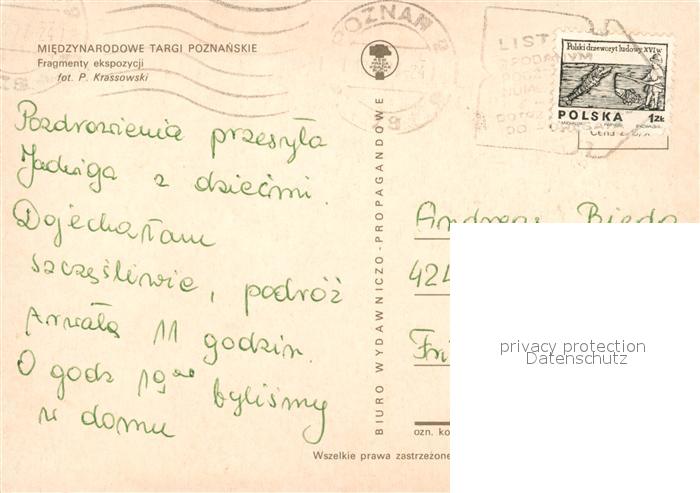 MIĘDZYNARODOWE TARGI POZNAŃSKIE
Fragmenty ekspozycji
fot. P. Krassowski
Pozdrowienia przesyła
Jadwiga z dziećmi.
Dojechałam
szczęśliwie, podróż
trwała 11 godzin.
O godz 19⁰⁰ byliśmy
w domu
BIURO WYDAWNICZO-PROPAGANDOWE
POZNAŃ 2
LIST
Polski drzeworyt ludowy XVI w.
POLSKA 1 ZŁ
Andreas Bieda
424
Fri
privacy protection
Datenschutz
ozn. ko
Wszelkie prawa zastrzeżone